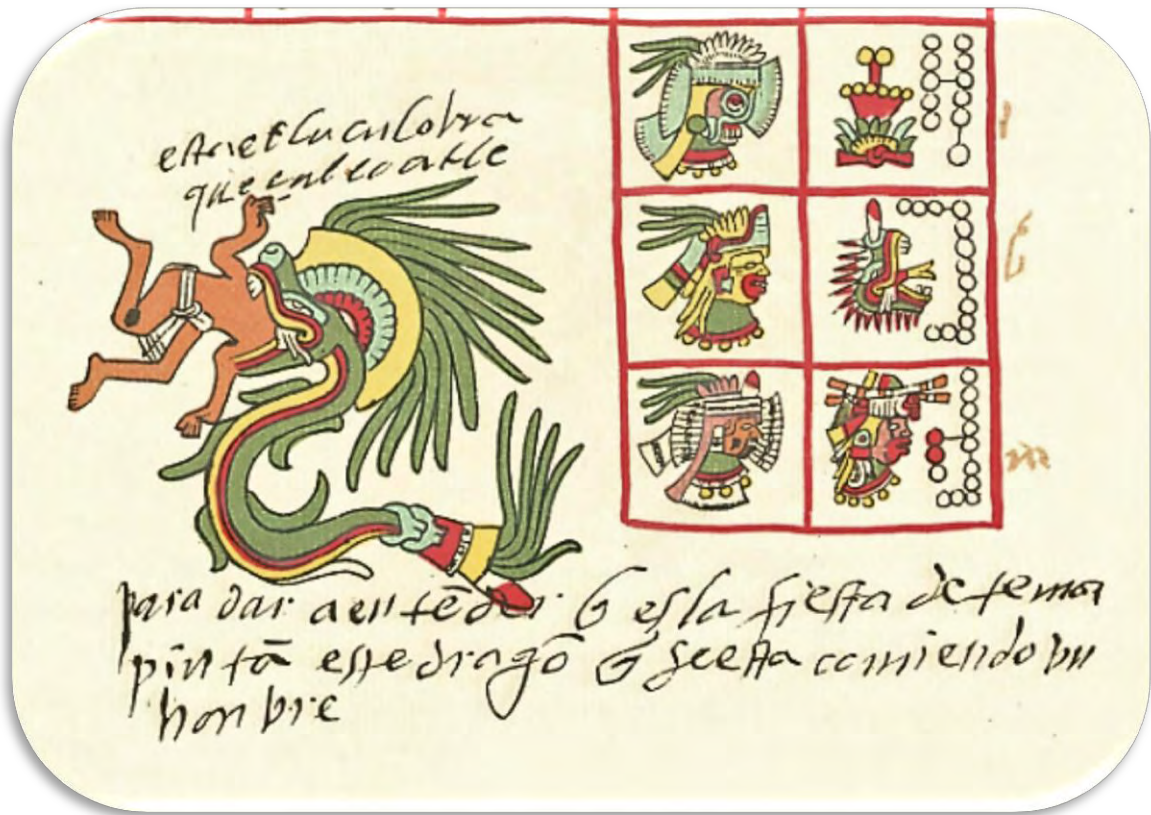 esta es la culebra
queçalcoatle
para dar a entēder q̄ es la fiesta de temor
pintā este dragō q̄ se esta comiendo vn
honbre